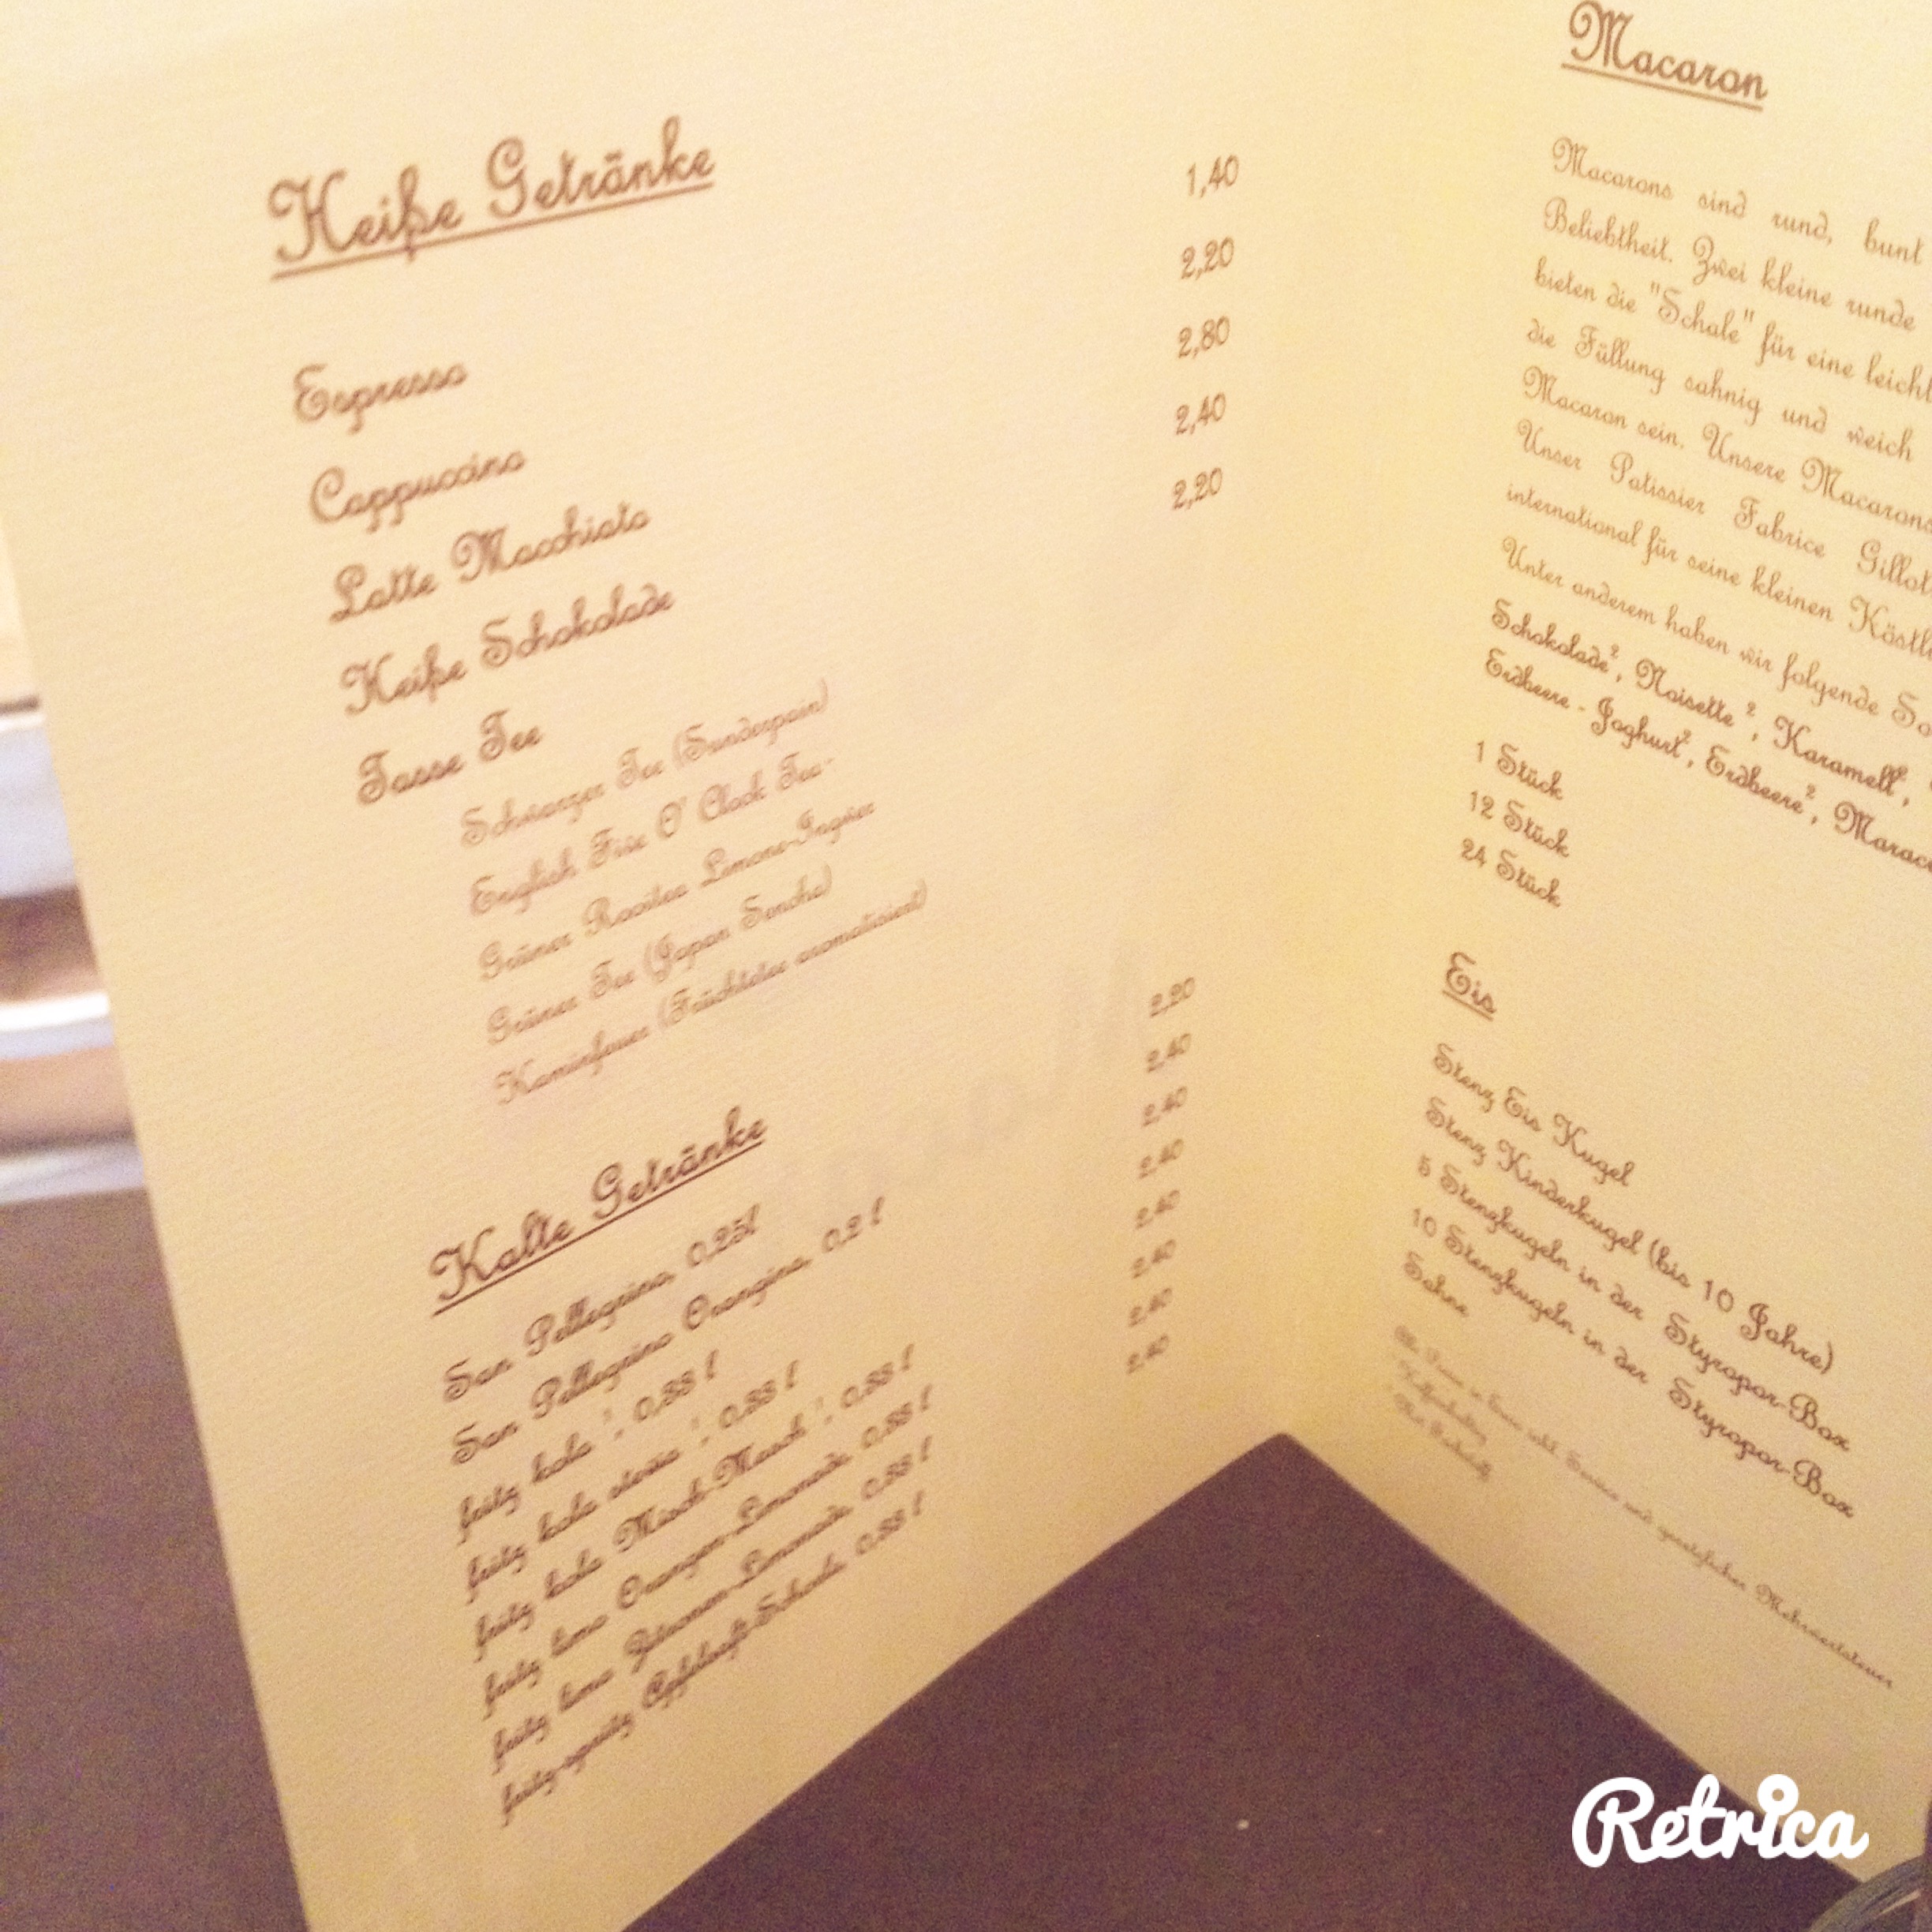 Heiße Getränke
Espresso 1,40
Cappuccino 2,20
Latte Macchiato 2,80
Heiße Schokolade 2,40
Tasse Tee 2,20
Schwarzer Tee (Sunderpain)
English Five O' Clock Tea-
Grüner Rooitea Lemone-Ingwer
Grüner Tee (Japan Sencha)
Kaminfeuer (Früchtetee aromatisiert)
Kalte Getränke
San Pellegrino, 0,25l 2,20
San Pellegrino Orangina, 0,2 l 2,40
fritz kola ¹, 0,33 l 2,40
fritz kola stevia ¹, 0,33 l 2,40
fritz kola Misch-Masch ¹, 0,33 l 2,40
fritz limo Orangen-Limonade, 0,33 l 2,40
fritz limo Zitronen-Limonade, 0,33 l 2,40
fritz-spritz Apfelsaft-Schorle, 0,33 l 2,40
Macaron
Macarons sind rund, bunt
Beliebtheit. Zwei kleine runde
bieten die "Schale" für eine leicht
die Füllung sahnig und weich
Macaron sein. Unsere Macarons
Unser Patissier Fabrice Gillot
international für seine kleinen Köstl
Unter anderem haben wir folgende So
Schokolade², Noisette², Karamell²,
Erdbeere - Joghurt², Erdbeere², Marac
1 Stück
12 Stück
24 Stück
Eis
Stenz Eis Kugel
Stenz Kinderkugel (bis 10 Jahre)
5 Stenzkugeln in der Styropor-Box
10 Stenzkugeln in der Styropor-Box
Sahne
Alle Preise in Euro inkl. Service und gesetzlicher Mehrwertsteuer
Retrica